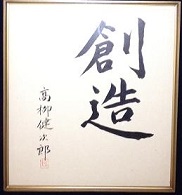 創造
高柳健次郎